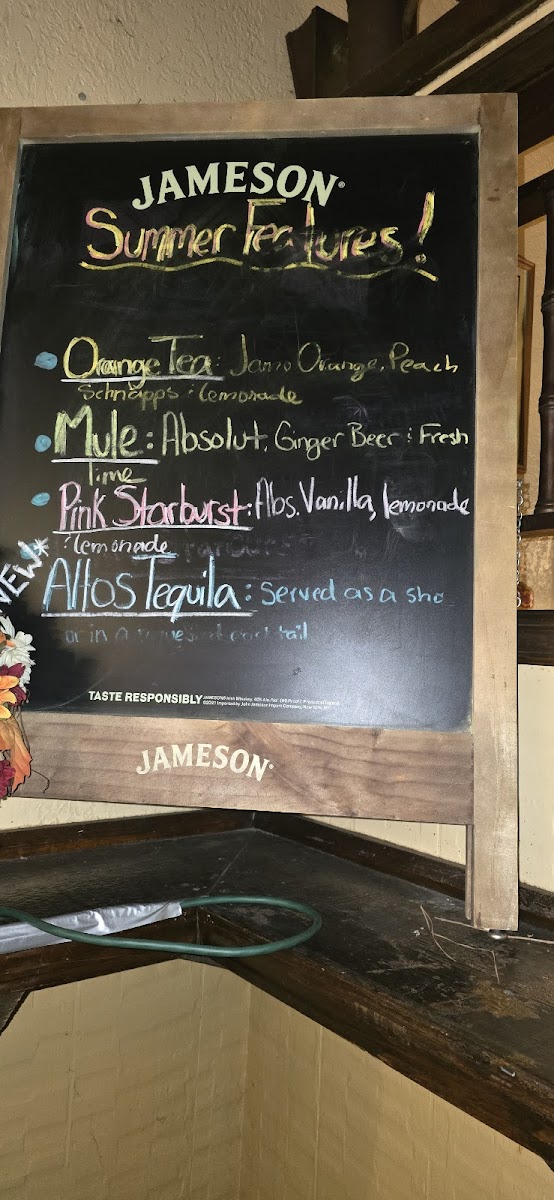 JAMESON®
Summer Features!
Orange Tea: Jamo Orange, Peach
Schnapps & lemonade
Mule: Absolut, Ginger Beer & Fresh
lime
Pink Starburst: Abs. Vanilla, lemonade
& lemonade
NEW*
Altos Tequila: Served as a sho
or in a requested cocktail
TASTE RESPONSIBLY
JAMESON®